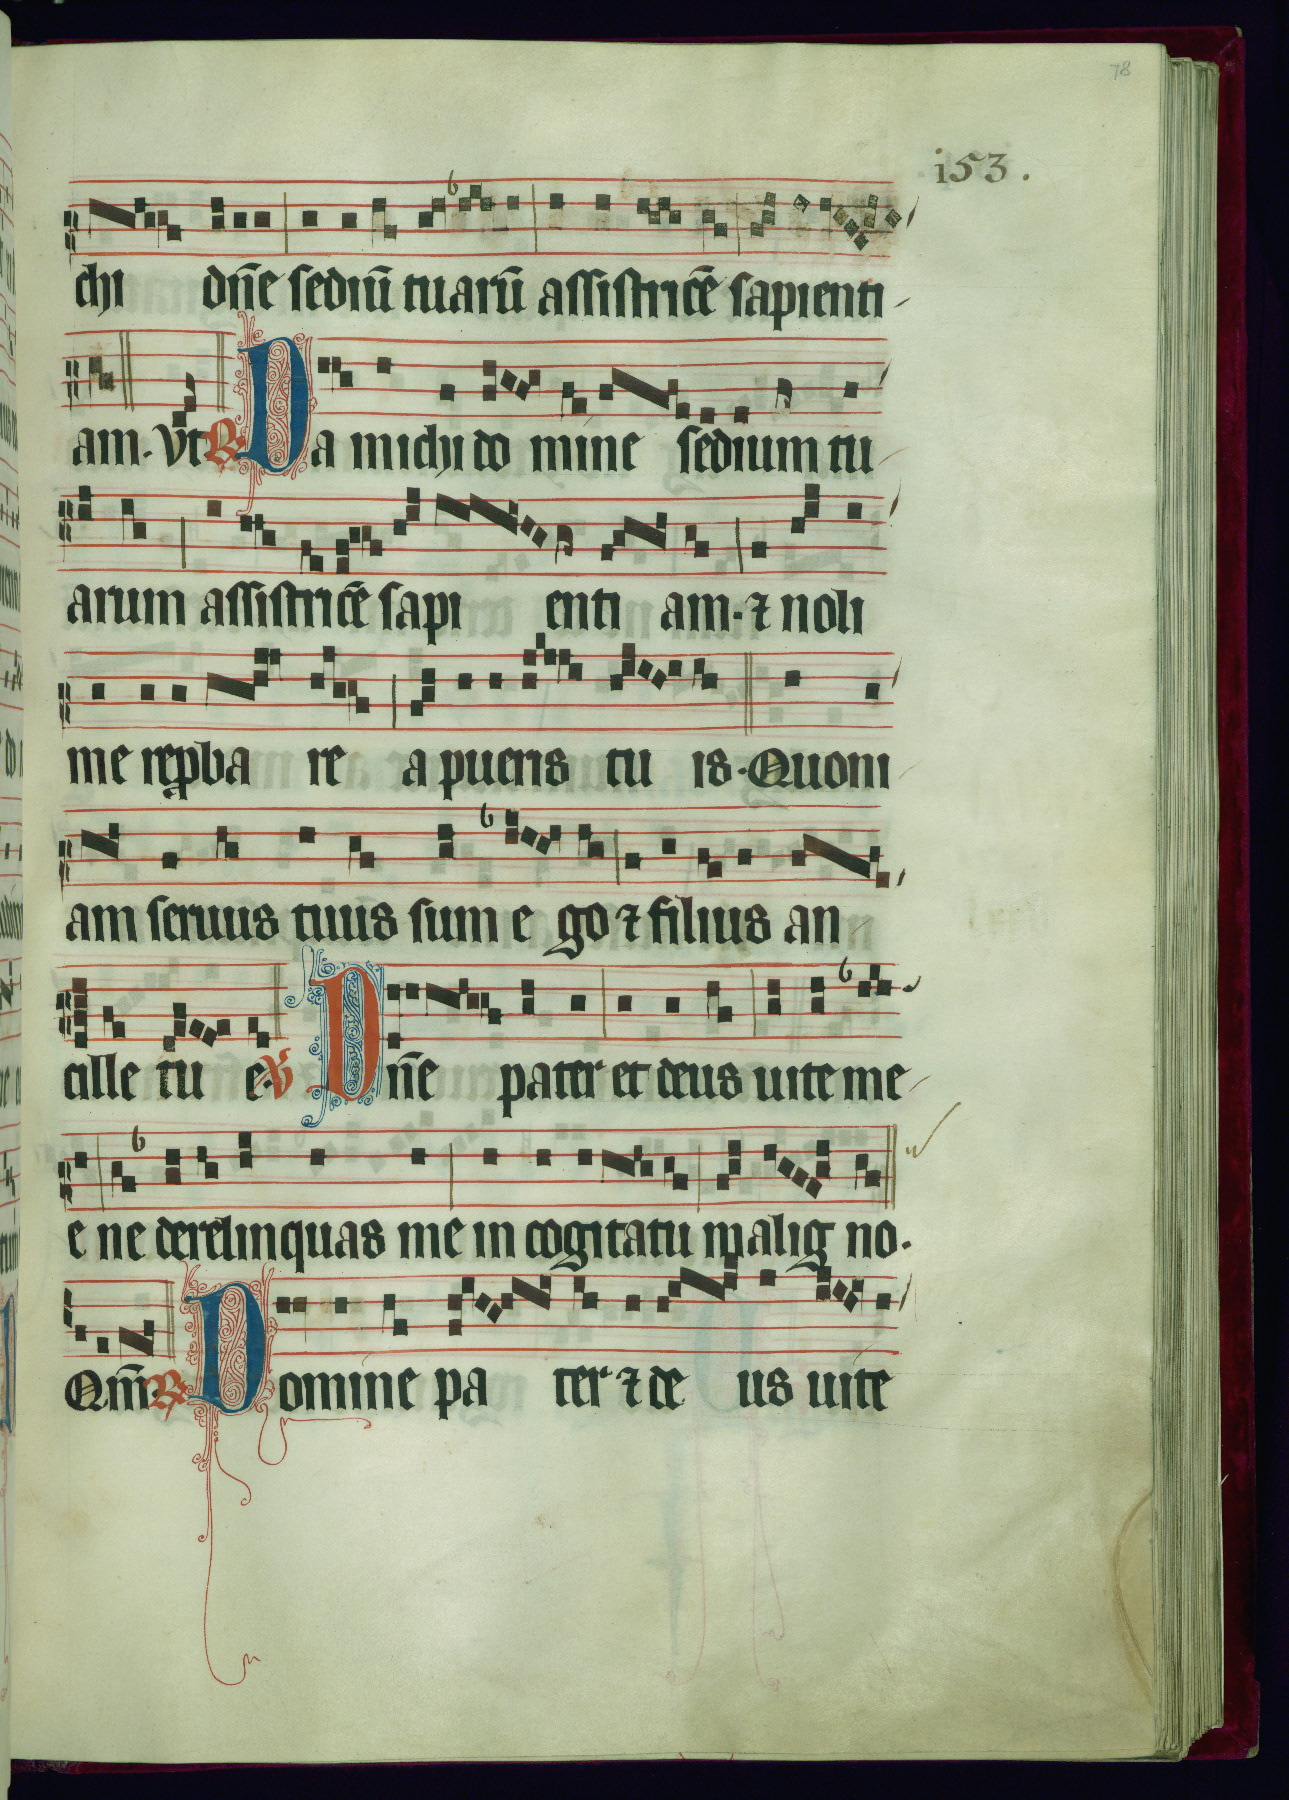 78
i53.
chi dn̄e sediū tuarū assistricē sapienti
am. Vt ℟ Da michi do mine sedium tu
arum assistricē sapi enti am. ⁊ noli
me rep̱ba re a pueris tu is. Quoni
am seruus tuus sum e go ⁊ filius an
cille tu e. ℣ Dn̄e pater et deus uite me
e ne derelinquas me in cogitatu malig no.
Qm̄ ℟ Domine pa ter ⁊ de us uite